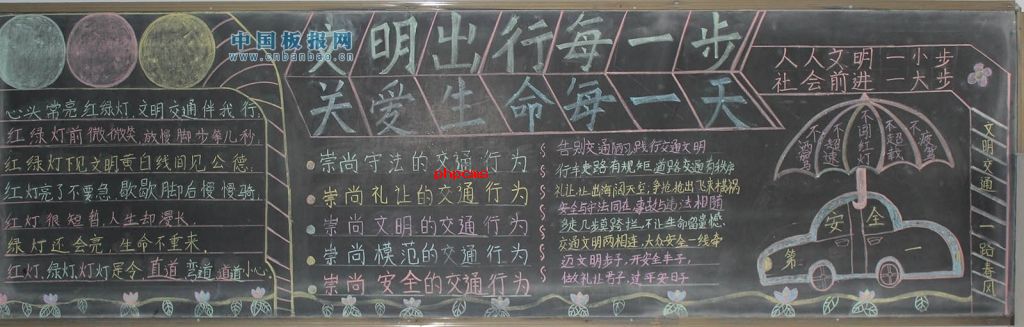 中国板报网
www.cnbanbao.cn
文明出行每一步
关爱生命每一天
心头常亮红绿灯 文明交通伴我行,
红绿灯前微微笑 放慢脚步等几秒,
红绿灯下见文明 黄白线间见公德,
红灯亮了不要急, 歇歇脚后慢慢骑,
红灯很短暂 人生却漫长,
绿灯还会亮, 生命不重来,
红灯, 绿灯, 灯灯是令, 直道 弯道 道道小心
崇尚守法的交通行为
崇尚礼让的交通行为
崇尚文明的交通行为
崇尚模范的交通行为
崇尚安全的交通行为
phpcms
告别交通陋习 践行交通文明
行车走路有规矩 道路交通有秩序
礼让让出海阔天空, 争抢抢出飞来横祸
安全与守法同在 事故与违法相随
徒儿莫蹬路拦, 不让生命留遗憾
交通文明两相连, 大众安全一线牵
迈文明步子, 开安全车子,
做礼让君子, 过平安日子
人人文明一小步
社会前进一大步
不酒驾
不超速
不闯红灯
不超载
不疲驾
安全第一
文明交通一路春风